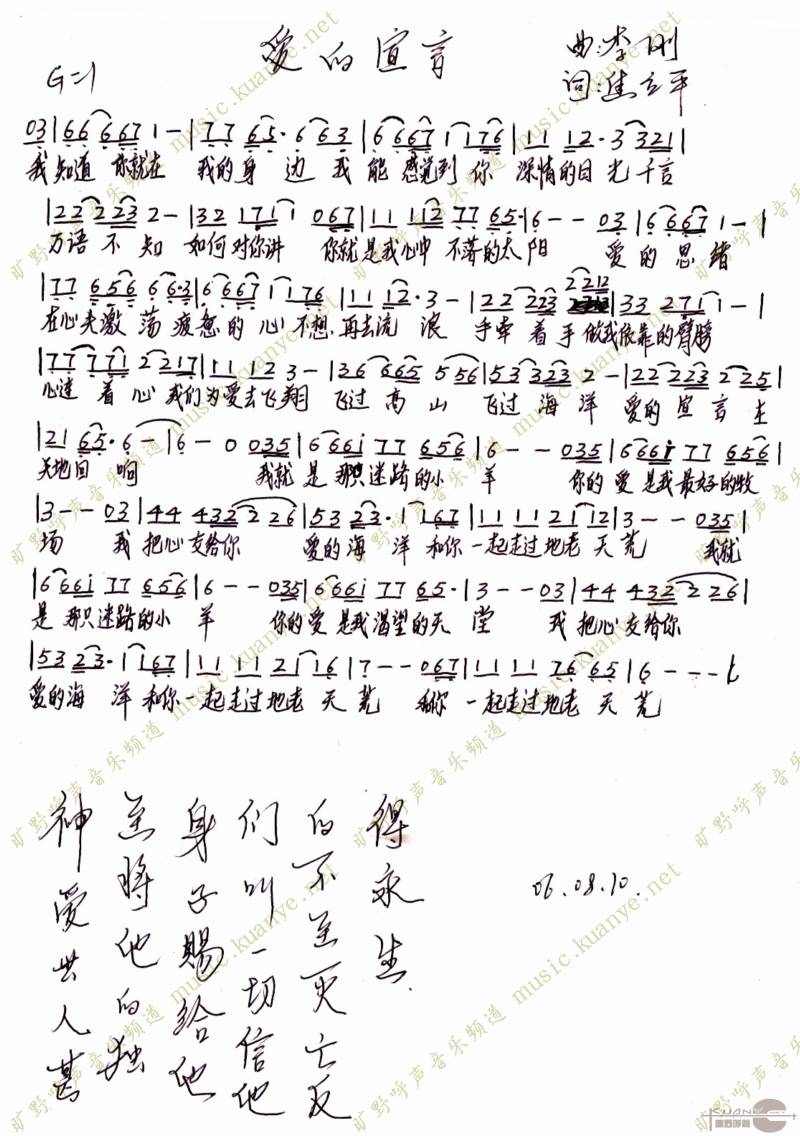 爱的宣言
G=1
曲:李刚
词:焦立平
03|66 6667 1-|77 65·663|6667 1176|11 12·3 3321|
我知道 你就在 我的身边 我能感觉到你 深情的目光 千言
|22 223 2-|32 171 067|11 112 77 65·|6-- 03|6667 1-|
万语不知 如何对你讲 你就是我心中 不落的太阳 爱的思绪
|77 656 66·3|6667 1176|11 12·3-|22 223 2212|33 271 1-|
在心头激荡 疲惫的心不想再去流浪 手牵着手 做我依靠的臂膀
|77 771 2217|11 12 3-|36 665 556|53 323 2-|22 223 2225|
心连着心 我们为爱去飞翔 飞过高山 飞过海洋 爱的宣言在
|21 65·6-|6-0 035|6661 77 656|6-- 035|6661 77 656|
天地回响 我就是那只迷路的小羊 你的爱是我最好的牧
|3-- 03|44 432 226|53 23·1 167|11 11 2112|3-- 035|
场 我把心交给你 爱的海洋 和你一起走过地老天荒 我就
|6661 77 656|6-- 035|6661 77 65·|3-- 03|44 432 226|
是那只迷路的小羊 你的爱是我渴望的天堂 我把心交给你
|53 23·1 167|11 11 2116|7-- 067|11 11 76 65|6---|
爱的海洋 和你一起走过地老天荒 和你一起走过地老天荒
神爱世人甚
至将他的独
身子賜给他
们叫一切信他
的不至灭亡反
得永生
06.08.10.
旷野呼声音乐频道 music.kuanye.net
KUANYE
旷野呼声